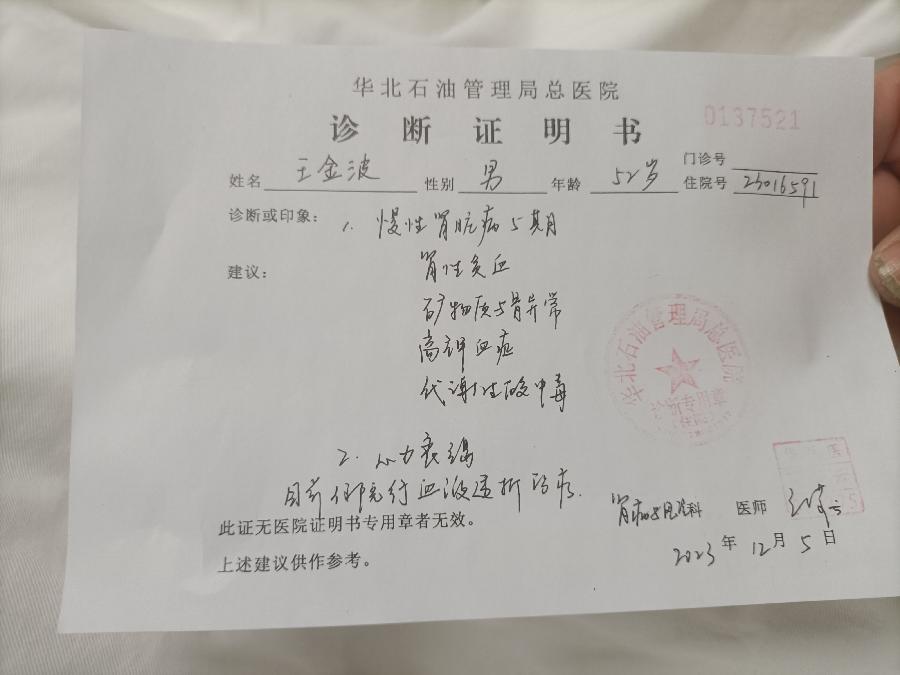 华北石油管理局总医院
0137521
诊断证明书
姓名 王金波 性别 男 年龄 52岁 门诊号
住院号 23016591
诊断或印象： 1. 慢性肾脏病5期
建议： 肾性贫血
矿物质与骨异常
高钾血症
代谢性酸中毒
2. 心力衰竭
目前住院行血液透析治疗.
此证无医院证明书专用章者无效。
上述建议供作参考。
肾病与风湿科 医师
2023年12月5日
华北石油管理局总医院